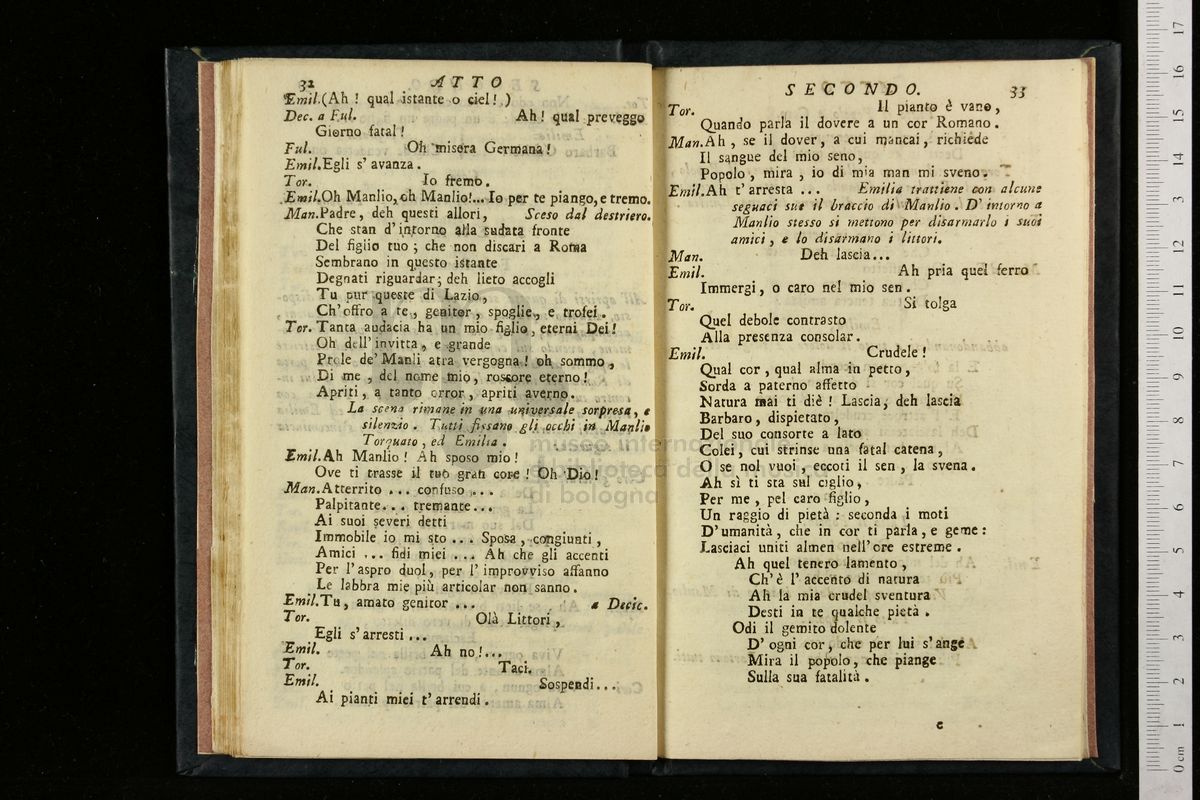 32 ATTO
Emil.(Ah ! qual istante o ciel! )
Dec. a Ful. Ah! qual preveggo
Giorno fatal!
Ful. Oh misera Germana!
Emil.Egli s' avanza.
Tor. Io fremo.
Emil.Oh Manlio, oh Manlio!... Io per te piango, e tremo.
Man.Padre, deh questi allori, Sceso dal destriero.
Che stan d'intorno alla sudata fronte
Del figlio tuo ; che non discari a Roma
Sembrano in questo istante
Degnati riguardar; deh lieto accogli
Tu pur queste di Lazio,
Ch'offro a te, genitor, spoglie, e trofei.
Tor. Tanta audacia ha un mio figlio, eterni Dei!
Oh dell' invitta, e grande
Prole de' Manli atra vergogna! oh sommo,
Di me, del nome mio, rossore eterno!
Apriti, a tanto orror, apriti averno.
La scena rimane in una universale sorpresa, e
silenzio. Tutti fissano gli occhi in Manlio
Torquato, ed Emilia.
Emil.Ah Manlio! Ah sposo mio!
Ove ti trasse il tuo gran core! Oh Dio!
Man.Atterrito ... confuso ...
Palpitante... tremante...
Ai suoi severi detti
Immobile io mi sto ... Sposa, congiunti,
Amici ... fidi miei ... Ah che gli accenti
Per l'aspro duol, per l' improvviso affanno
Le labbra mie più articolar non sanno.
Emil.Tu, amato genitor ... a Decic.
Tor. Olà Littori,
Egli s' arresti...
Emil. Ah no!...
Tor. Taci.
Emil. Sospendi...
Ai pianti miei t' arrendi.
SECONDO. 33
Tor. Il pianto è vano,
Quando parla il dovere a un cor Romano.
Man.Ah, se il dover, a cui mancai, richiede
Il sangue del mio seno,
Popolo, mira, io di mia man mi sveno.
Emil.Ah t' arresta ... Emilia trattiene con alcune
seguaci sue il braccio di Manlio. D' intorno a
Manlio stesso si mettono per disarmarlo i suoi
amici, e lo disarmano i littori.
Man. Deh lascia...
Emil. Ah pria quel ferro
Immergi, o caro nel mio sen.
Tor. Si tolga
Quel debole contrasto
Alla presenza consolar.
Emil. Crudele!
Qual cor, qual alma in petto,
Sorda a paterno affetto
Natura mai ti diè! Lascia, deh lascia
Barbaro, dispietato,
Del suo consorte a lato
Colei, cui strinse una fatal catena,
O se nol vuoi, eccoti il sen, la svena.
Ah sì ti sta sul ciglio,
Per me, pel caro figlio,
Un raggio di pietà : seconda i moti
D'umanità, che in cor ti parla, e geme:
Lasciaci uniti almen nell'ore estreme.
Ah quel tenero lamento,
Ch'è l' accento di natura
Ah la mia crudel sventura
Desti in te qualche pietà.
Odi il gemito dolente
D' ogni cor, che per lui s'ange
Mira il popolo, che piange
Sulla sua fatalità.
c
museo internazionale
e biblioteca della musica
di bologna
0 cm 1 2 3 4 5 6 7 8 9 10 11 12 13 14 15 16 17